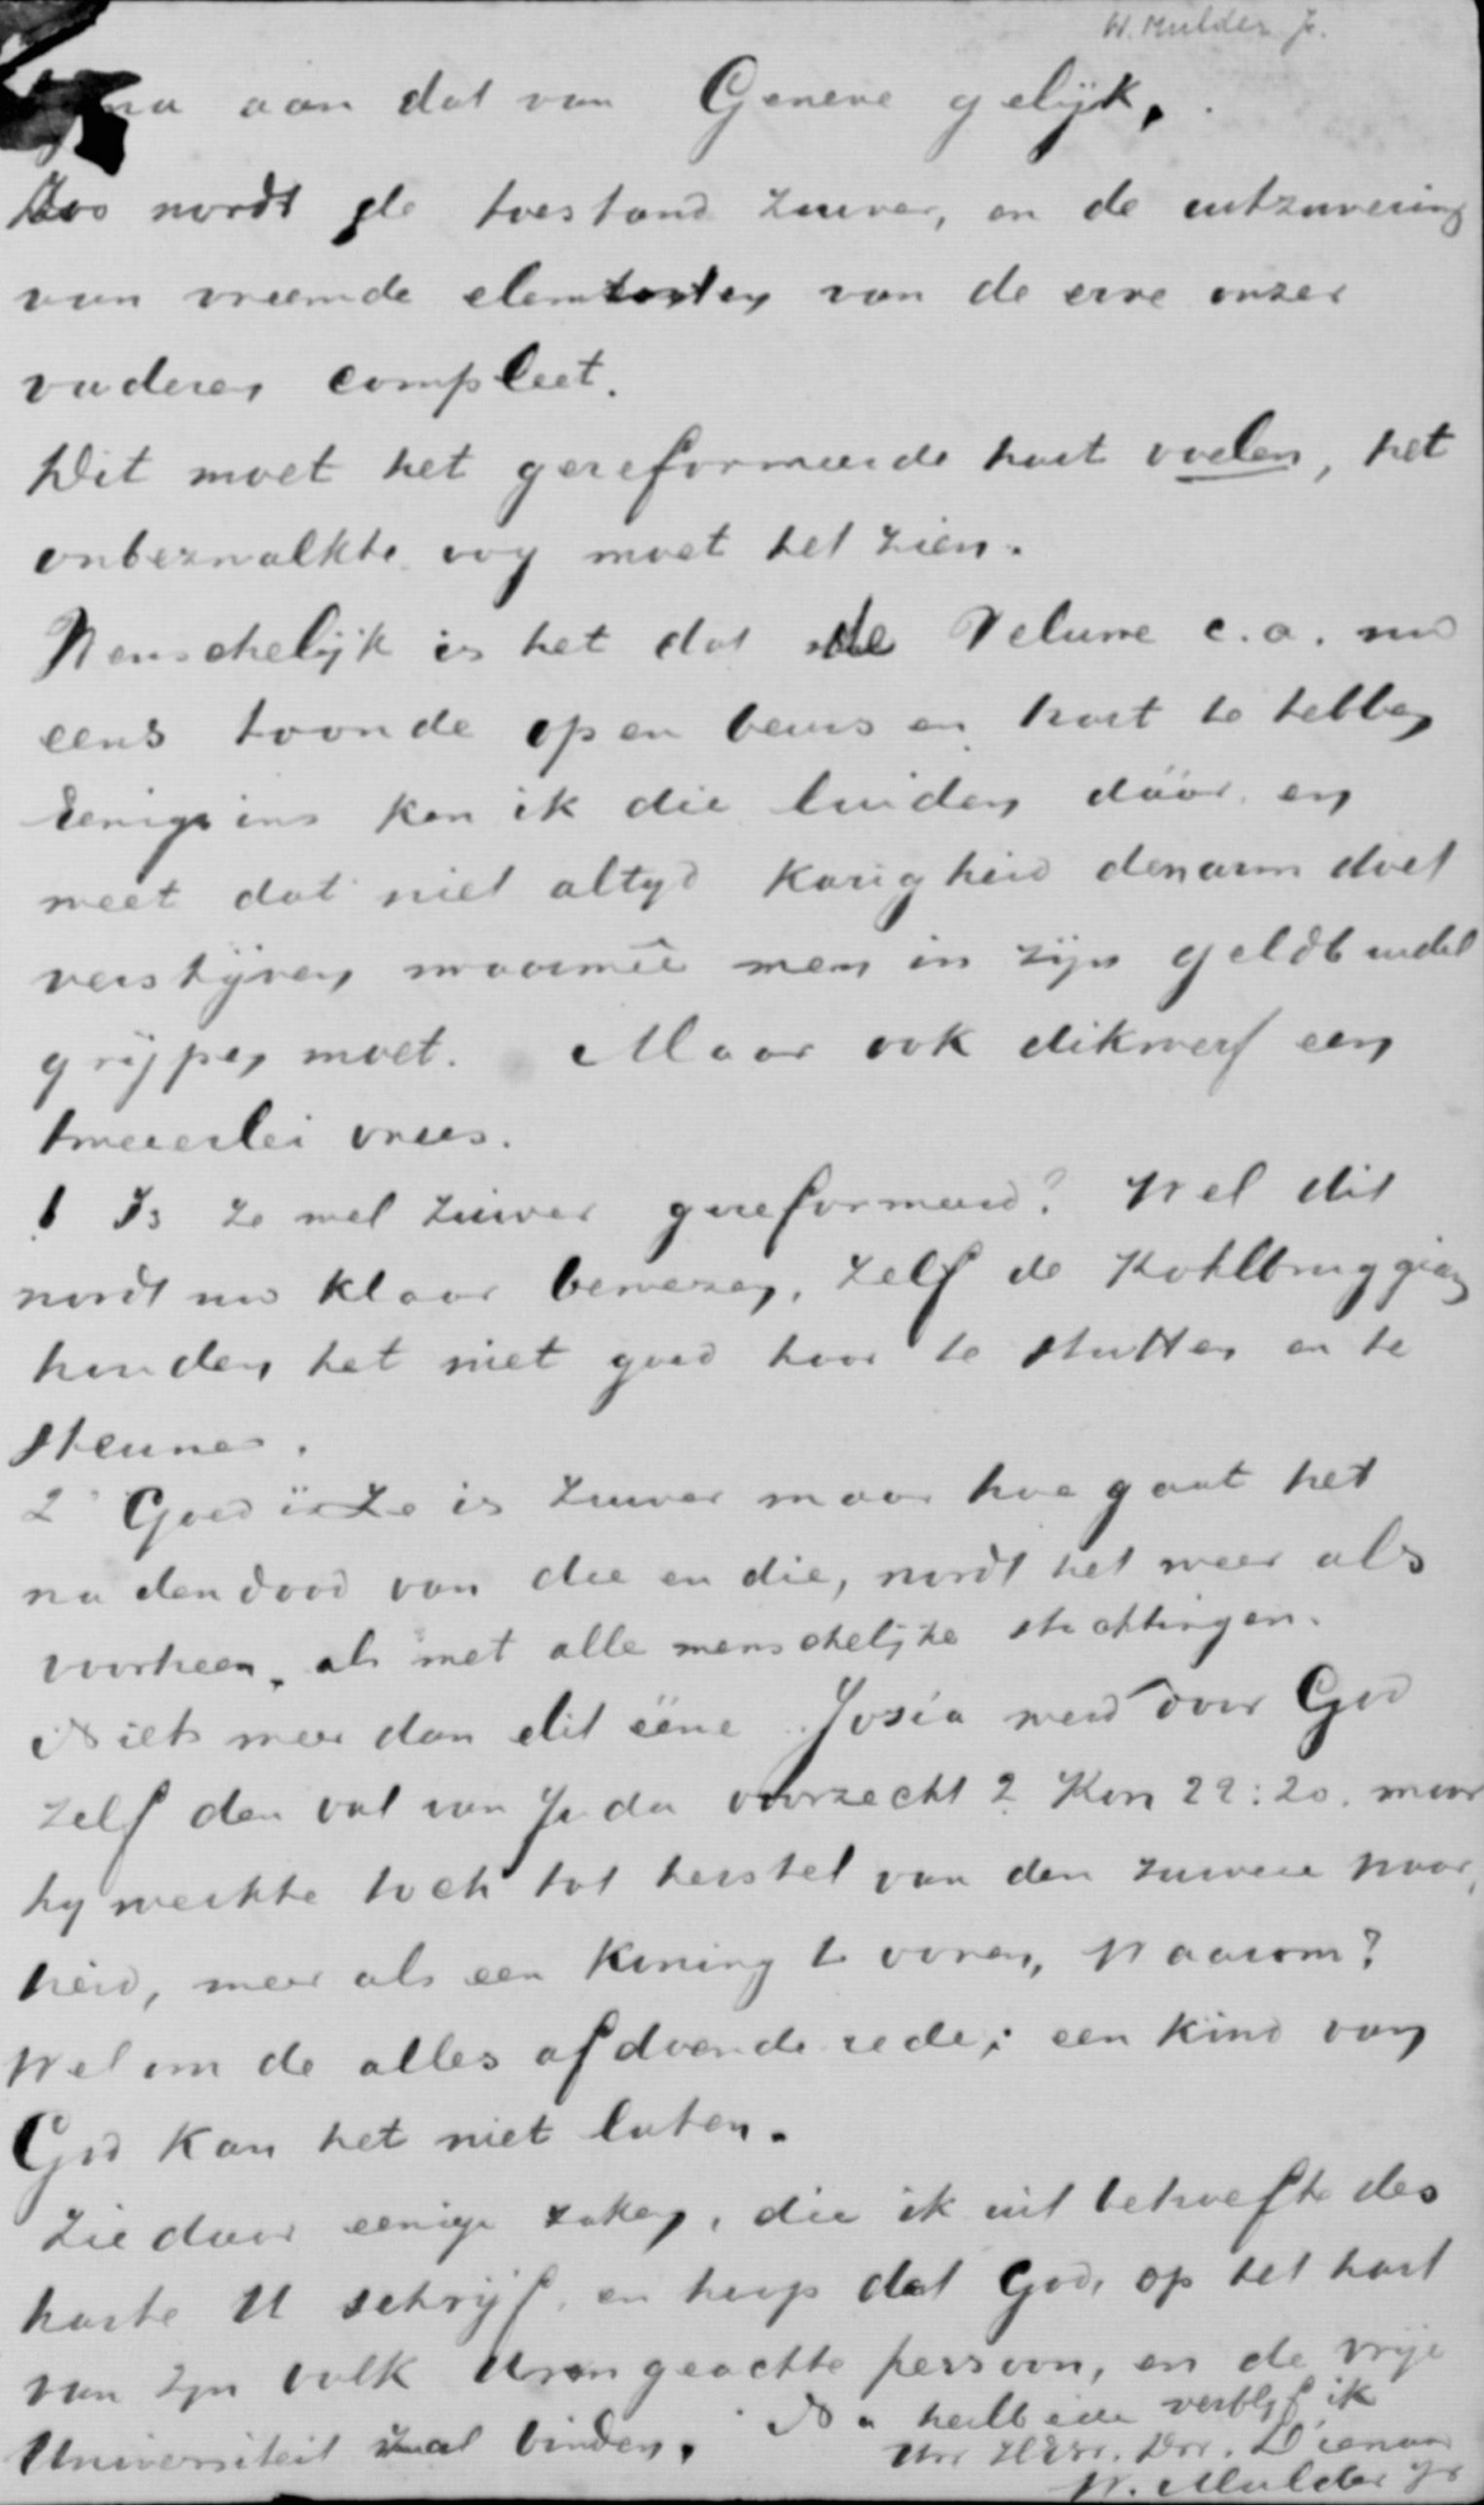 W. Mulder Jr.
na aan dat van Geneve gelijk.
Zoo wordt de toestand zuiver, en de uitzuivering
van vreemde elementen van de erve onzer
vaderen compleet.
Dit moet het gereformeerde hart voelen, het
onbezwalkte oog moet het zien.
Wenschelijk is het dat de Veluwe c.a. nu
eens toonde open beurs en hart te hebben
Eenigsins ken ik die luiden dáár en
weet dat niet altyd karigheid den arm doet
verstijven waarmeê men in zijn geldbuidel
grijpen moet. Maar ook dikwerf een
tweeerlei vrees.
1 Is ze wel zuiver gereformeerd? Wel dit
wordt nu klaar bewezen, zelf de Kohlbruggian
houden het niet goed haar te stutten en te
steunen.
2 Goed ze is zuiver maar hoe gaat het
na den dood van die en die, wordt het weer als
voorheen, als met alle menschelijke stichtingen.
Niets meer dan dit ééne Josia werd door God
zelf den val van Juda voorzecht 2 Kon 22:20. maar
hy werkte toch tot herstel van den zuivere waar
heid, meer als een koning te voren, Waarom?
Wel om de alles afdoende rede; een kind van
God kan het niet laten.
Zie daar eenige zaken, die ik uit behoefte des
harte U schrijf, en hoop dat God, op het hart
van zyn volk Uwen geachte persoon, en de vrije
Universiteit zal binden. Na heilbede verblyf ik
Uw HEw. Dw. Dienaar
W. Mulder Jr